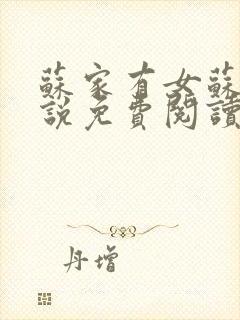 蘇家有女蘇
說免費閱讀
丹增